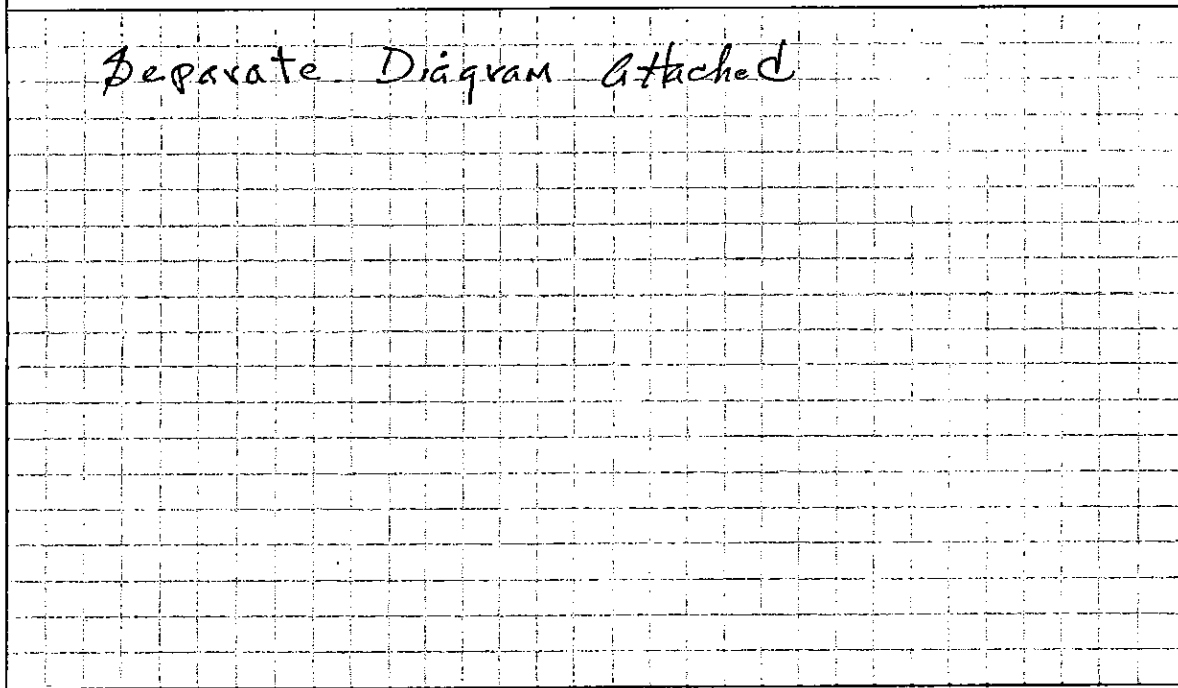 Separate Diagram attached